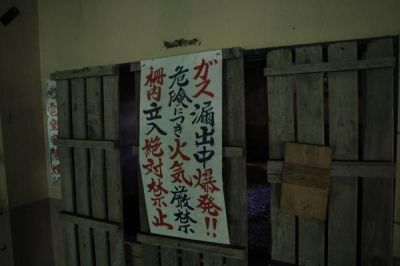 ガス漏出中爆発!!
危険につき火気厳禁
柵内立入絶対禁止